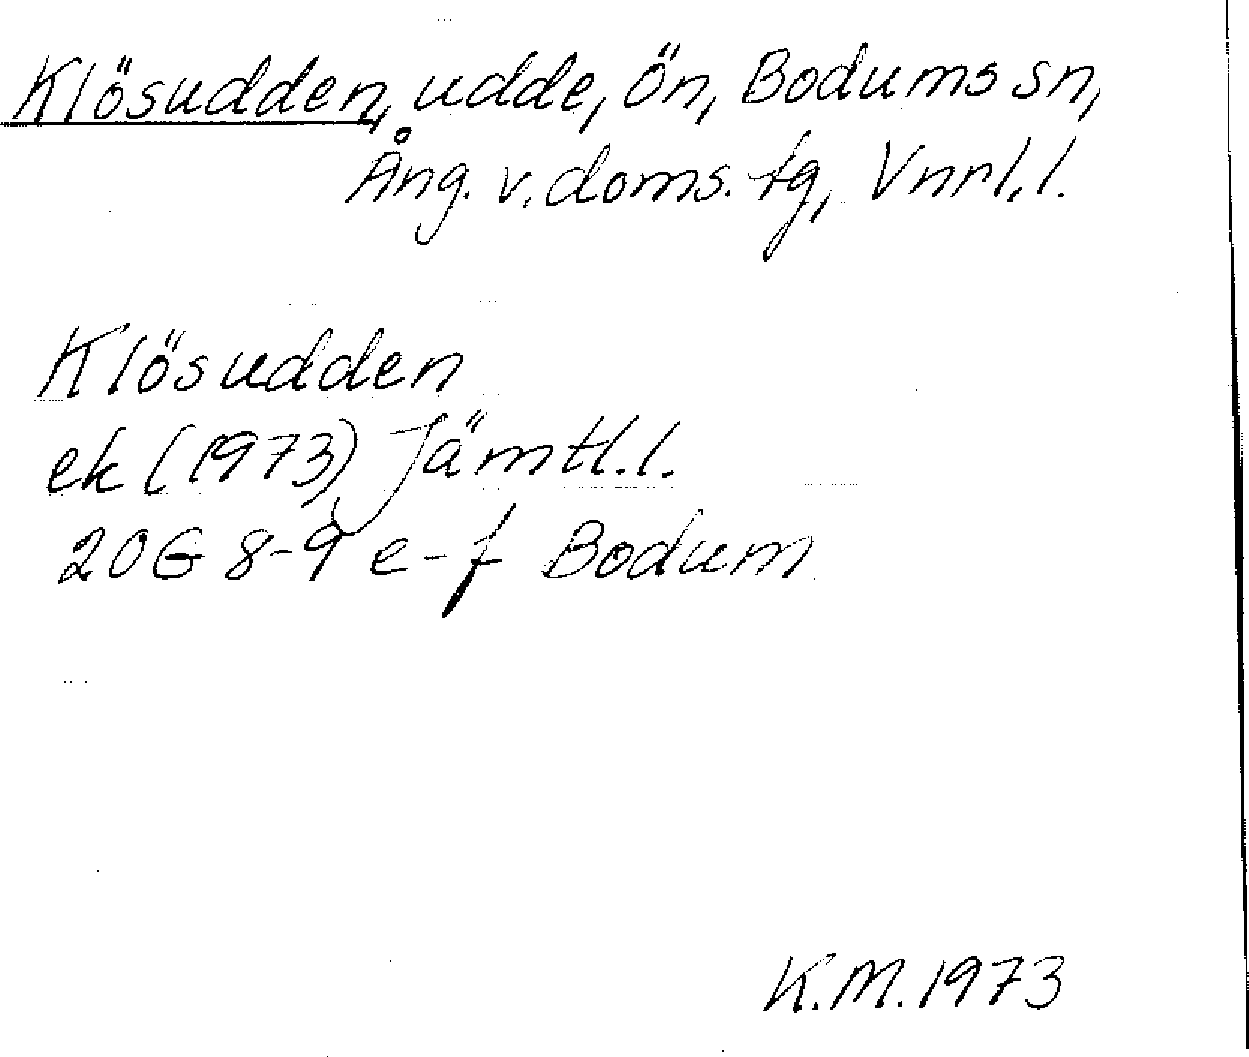 Klösudden, udde, Ön, Bodums sn,
Ång. v. doms. tg, Vnrl. l.
Klösudden
ek (1973) Jämtl. l.
20G 8-9 e-f Bodum
K.M. 1973